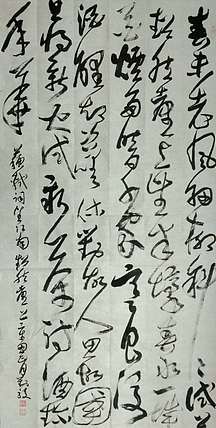 春未老風細柳斜〻試上
超然臺上看半壕春水一城
花煙雨暗千家寒食後
酒醒卻咨嗟休對故人思故國
且將新火試新茶詩酒趁
年華
蘇軾詞望江南超然臺上